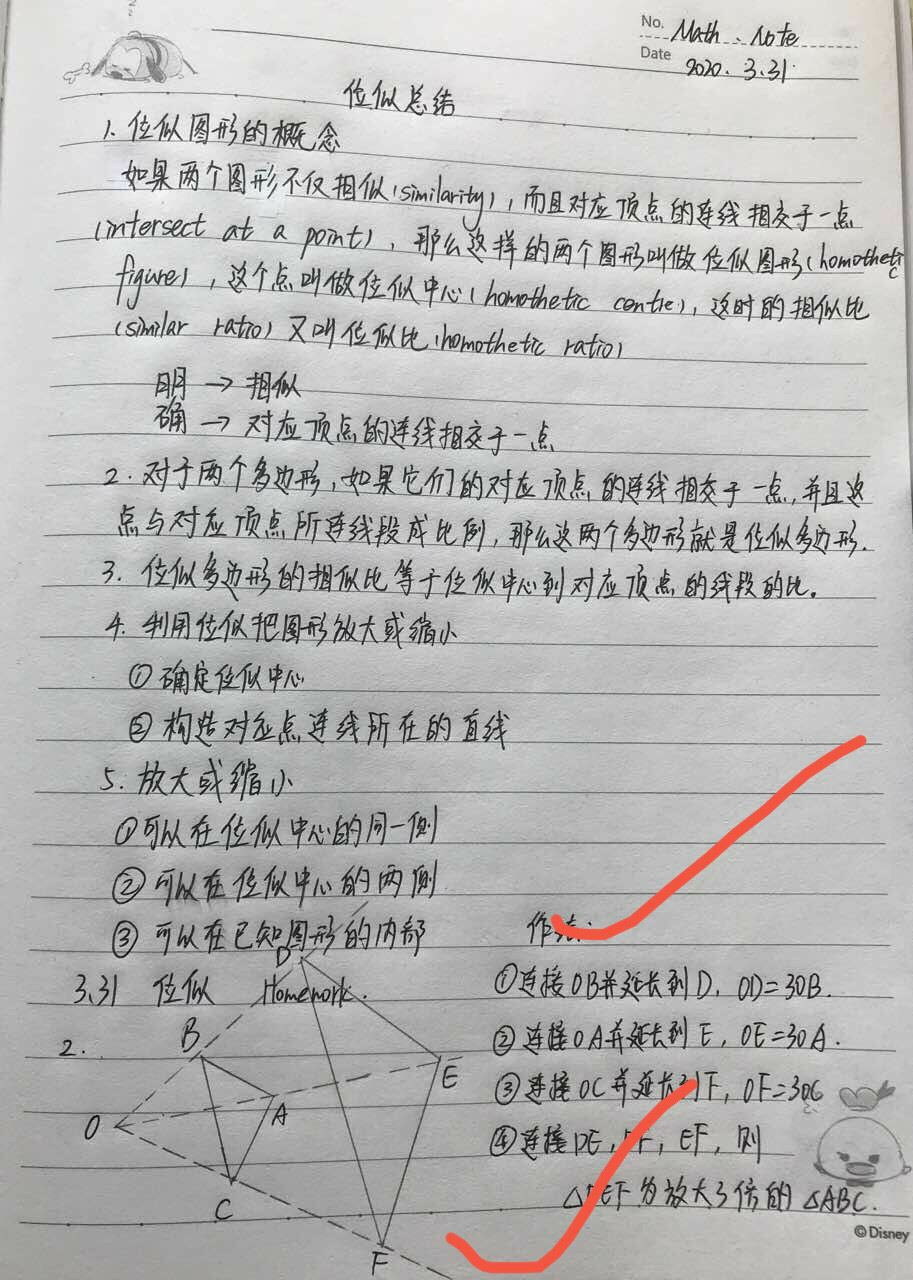 No. Math. Note
Date 2020.3.31
位似总结
1. 位似图形的概念
如果两个图形不仅相似(similarity),而且对应顶点的连线相交于一点
(intersect at a point),那么这样的两个图形叫做位似图形(homothetic
figure),这个点叫做位似中心(homothetic centre),这时的相似比
(similar ratio)又叫位似比(homothetic ratio)
明 → 相似
确 → 对应顶点的连线相交于一点
2. 对于两个多边形,如果它们的对应顶点的连线相交于一点,并且这
点与对应顶点所连线段成比例,那么这两个多边形就是位似多边形.
3. 位似多边形的相似比等于位似中心到对应顶点的线段的比。
4. 利用位似把图形放大或缩小
① 确定位似中心
② 构造对应点连线所在的直线
5. 放大或缩小
① 可以在位似中心的同一侧
② 可以在位似中心的两侧
③ 可以在已知图形的内部
3.31 位似 Homework.
2.
D
B
E
A
O
C
F
作法:
① 连接OB并延长到D, OD=3OB.
② 连接OA并延长到E, OE=3OA.
③ 连接OC并延长到F, OF=3OC
④ 连接DE, DF, EF, 则
△DEF为放大3倍的△ABC.
©Disney